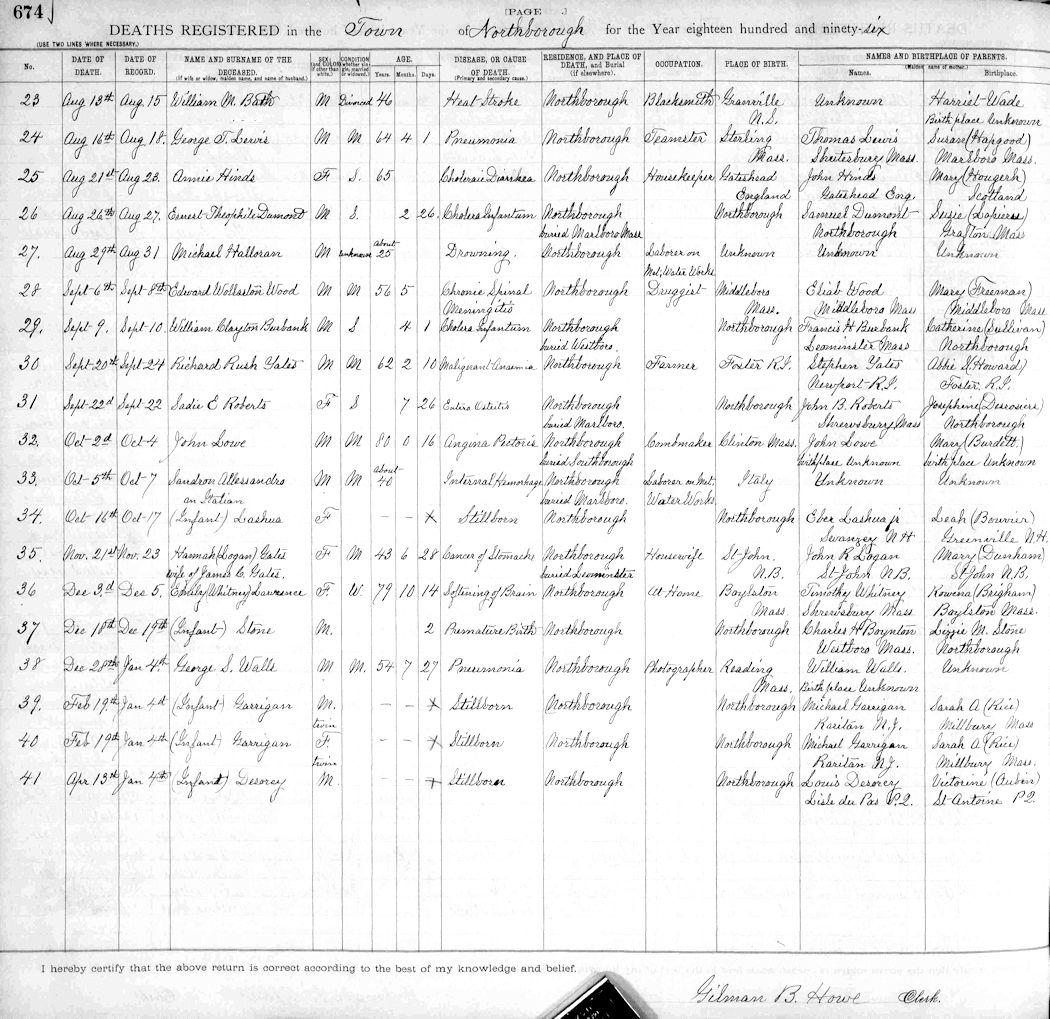 674
[PAGE .]
DEATHS REGISTERED in the Town of Northborough for the Year eighteen hundred and ninety-six
(USE TWO LINES WHERE NECESSARY.)
No. DATE OF DEATH. DATE OF RECORD. NAME AND SURNAME OF THE DECEASED. (If wife or widow, maiden name, and name of husband.) SEX (and COLOR if other than white). CONDITION (whether single, married or widowed). AGE. Years. Months. Days. DISEASE, OR CAUSE OF DEATH. (Primary and secondary cause.) RESIDENCE, AND PLACE OF DEATH, and Burial (if elsewhere). OCCUPATION. PLACE OF BIRTH. NAMES AND BIRTHPLACE OF PARENTS. (Maiden name of mother.) Names. Birthplace.
23 Aug 13th Aug. 15 William M. Bath M Divorced 46 Heat Stroke Northborough Blacksmith Granville Unknown Harriet Wade
N.S. Birth place Unknown
24 Aug 16th Aug 18. George T. Lewis M M 64 4 1 Pneumonia Northborough Teamster Sterling Thomas Lewis Susan (Hapgood)
Mass. Shrewsbury Mass. Marlboro Mass.
25 Aug 21st Aug 23. Annie Hinds F S. 65 Choleraic Diarrhea Northborough Housekeeper Gateshead John Hinds Mary (Hougerh)
England Gateshead Eng. Scotland
26 Aug 26th Aug 27. Ernest Theophile Dumont M S. 2 26 Cholera Infantum Northborough Northborough Samuel Dumont Susie (Lapierre)
buried Marlboro Mass Northborough Grafton Mass
27. Aug 29th Aug 31 Michael Halloran M unknown about 25 Drowning. Northborough Laborer on Unknown Unknown Unknown
Met. Water Works
28 Sept 6th Sept 8th Edward Wollaston Wood M M 56 5 Chronic Spinal Northborough Druggist Middleboro Eliab Wood Mary (Freeman)
Meningitis Mass. Middleboro Mass Middleboro Mass
29. Sept 9. Sept 10. William Clayton Burbank M S 4 1 Cholera Infantum Northborough Northborough Francis H Burbank Catherine (Sullivan)
buried Westboro. Leominster Mass Northborough
30 Sept 20th Sept 24 Richard Rush Yates M M 62 2 10 Malignant Anaemia Northborough Farmer Foster R.I. Stephen Yates Abbie S (Howard)
Newport R.I. Foster R.I.
31 Sept 22d Sept 22 Sadie E Roberts F S 7 26 Entero Northborough Northborough John B. Roberts Josephine (Desrosiers)
buried Marlboro. Shrewsbury Mass Northborough
32. Oct 2d Oct 4 John Lowe M M 80 0 16 Angina Pectoris Northborough Combmaker Clinton Mass. John Lowe Mary (Burdett)
buried Southborough birthplace Unknown birth place Unknown
33. Oct 5th Oct 7 Sandron Allessandro M M about 40 Internal Hemorhage Northborough Laborer on Met. Italy Unknown Unknown
an Italian buried Marlboro. Water Works
34. Oct 16th Oct 17 (Infant) Lashua F – – x Stillborn Northborough Northborough Eber Lashua jr Leah (Bouvier)
Swanzey N H Greenville N.H.
35. Nov. 21st Nov. 23 Hannah (Logan) Gates F M 43 6 28 Cancer of Stomach Northborough Housewife St John. John R Logan Mary (Dunham)
wife of James C. Gates. buried Leominster N.B. St John N.B. St John N.B.
36 Dec 3.d Dec 5. Emily (Whitney) Lawrence F W. 79 10 14 Softening of Brain Northborough At Home Boylston Timothy Whitney Rowena (Brigham)
Mass. Shrewsbury Mass Boylston Mass.
37 Dec 18th Dec 19th (Infant) Stone M. 2 Premature Birth Northborough Northborough Charles H Boynton Lizzie M. Stone
Westboro Mass. Northborough
38 Dec 28th Jan 4th George S. Walls M M. 54 7 27 Pneumonia Northborough Photographer Reading William Walls. Unknown
Mass. Birth place Unknown
39. Feb 19th Jan 4th (Infant) Garrigan M. – – x Stillborn Northborough Northborough Michael Garrigan Sarah A (Rice)
twin Raritan N.J. Millbury Mass
40 Feb 19th Jan 4th (Infant) Garrigan F. – – x Stillborn Northborough Northborough Michael Garrigan Sarah A (Rice)
twin Raritan N.J. Millbury Mass.
41 Apr 13th Jan 4th (Infant) Desorcy M. x Stillborn Northborough Northborough Louis Desorcy Victorine (Aubin)
Lisle du Pas P.Q. St Antoine P.Q.
I hereby certify that the above return is correct according to the best of my knowledge and belief.
Gilman B. Howe Clerk.